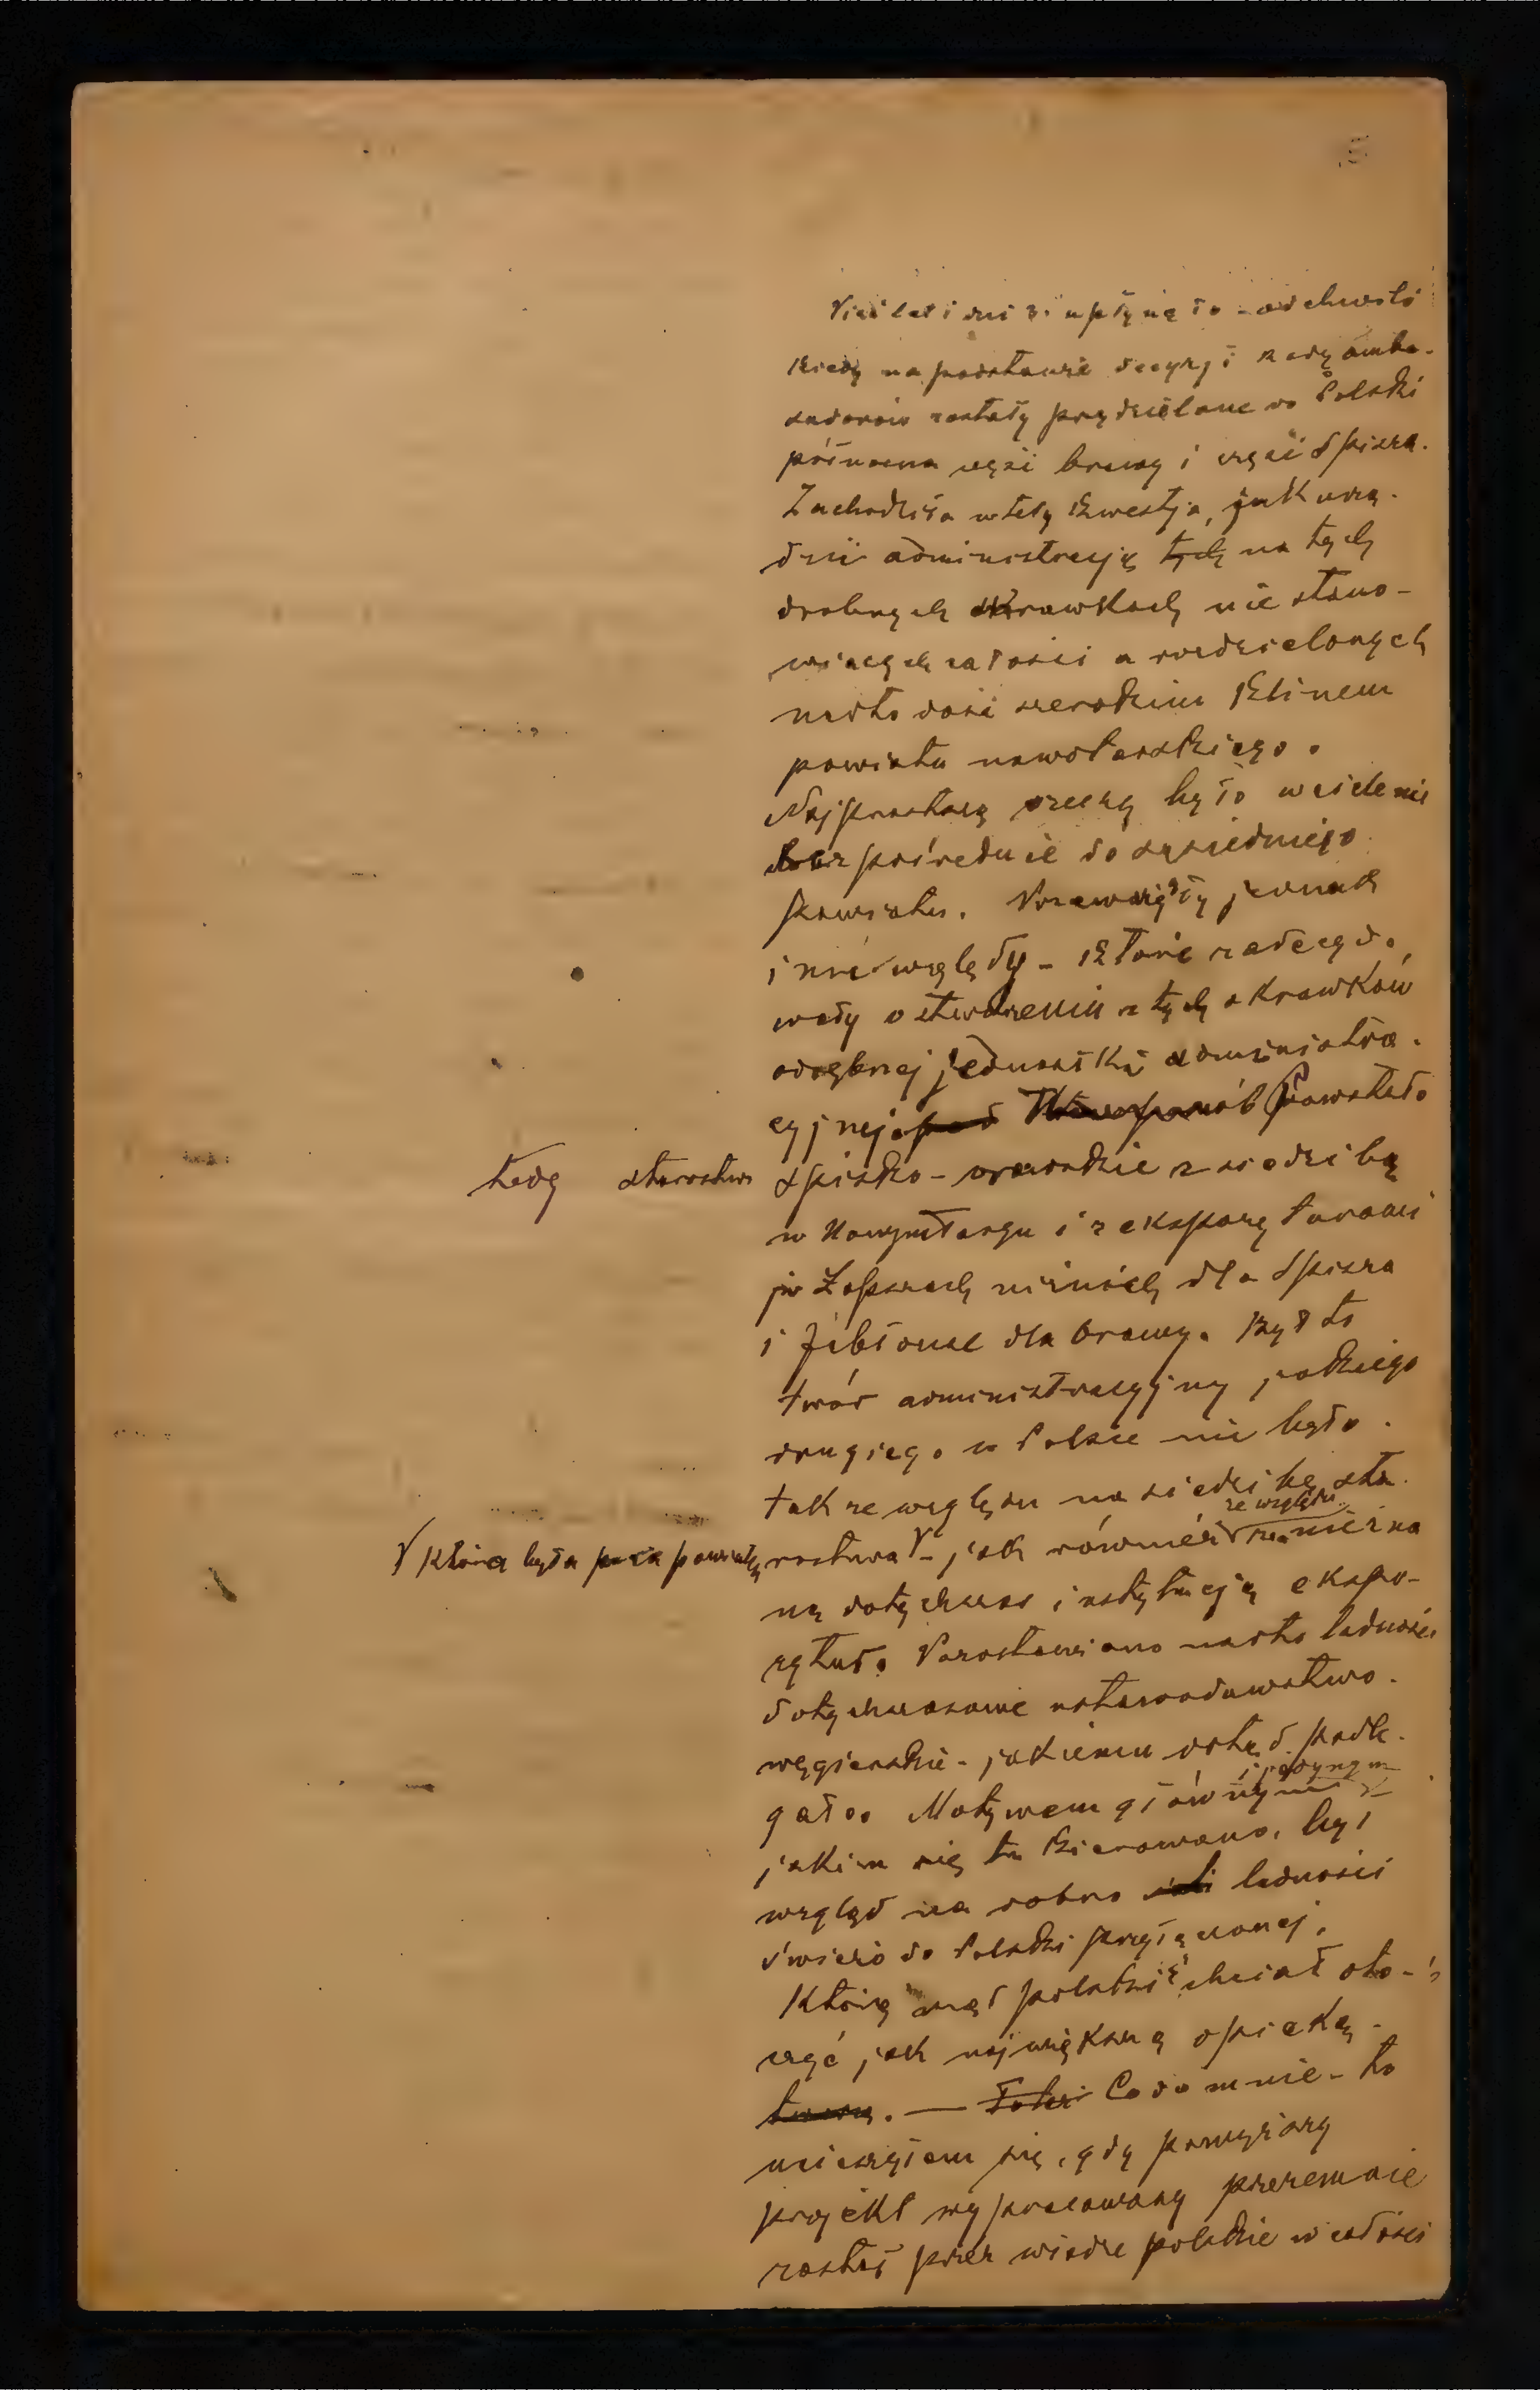 Pięć lat i dni 3. upłynęło - od chwili
kiedy na podstawie decyzji Rady amba-
sadorów zostały przydzielone do Polski
północna część Orawy i część Spisza.
Zachodziła wtedy kwestja, jak urzą-
dzić administrację tych na tych
drobnych skrawkach nie stano-
wiących całości a rozdzielonych
nadto dość szerokim klinem
powiatu nowotarskiego.
Najprostszą rzeczą było wcielenie
bezpośrednie do sąsiedniego
powiatu. Przeważyły jednak
inne względy - które zadecydo-
wały o stworzeniu z tych skrawków
odrębnej jednostki administra-
cyjnej. pod Powstało
tedy starostwo spisko-orawskie z siedzibą
w Nowymtargu i z ekspozyturami
w Łapszach niżnich dla Spisza
i Jabłonce dla Orawy. Był to
twór administracyjny jakiego
drugiego w Polsce nie było.
tak ze względu na siedzibę sta-
rostwa - jak również ze względu na niezna
która była poza powiatem
ną dotychczas instytucję ekspo-
zytur. Pozostawiono nadto ludności
dotychczasowe ustawodawstwo
węgierskie - jakiemu dotąd podle-
gało. Motywem głównym i jedynym
jakim się tu kierowano, był
wzgląd na dobro ludności
świeżo do Polski przyłączonej,
którą rząd polski chciał oto-
czyć jak największą opieką.
— Co do mnie - to
ucieszyłem się, gdy powyższy
projekt wypracowany przezemnie
został przez władze polskie w całości